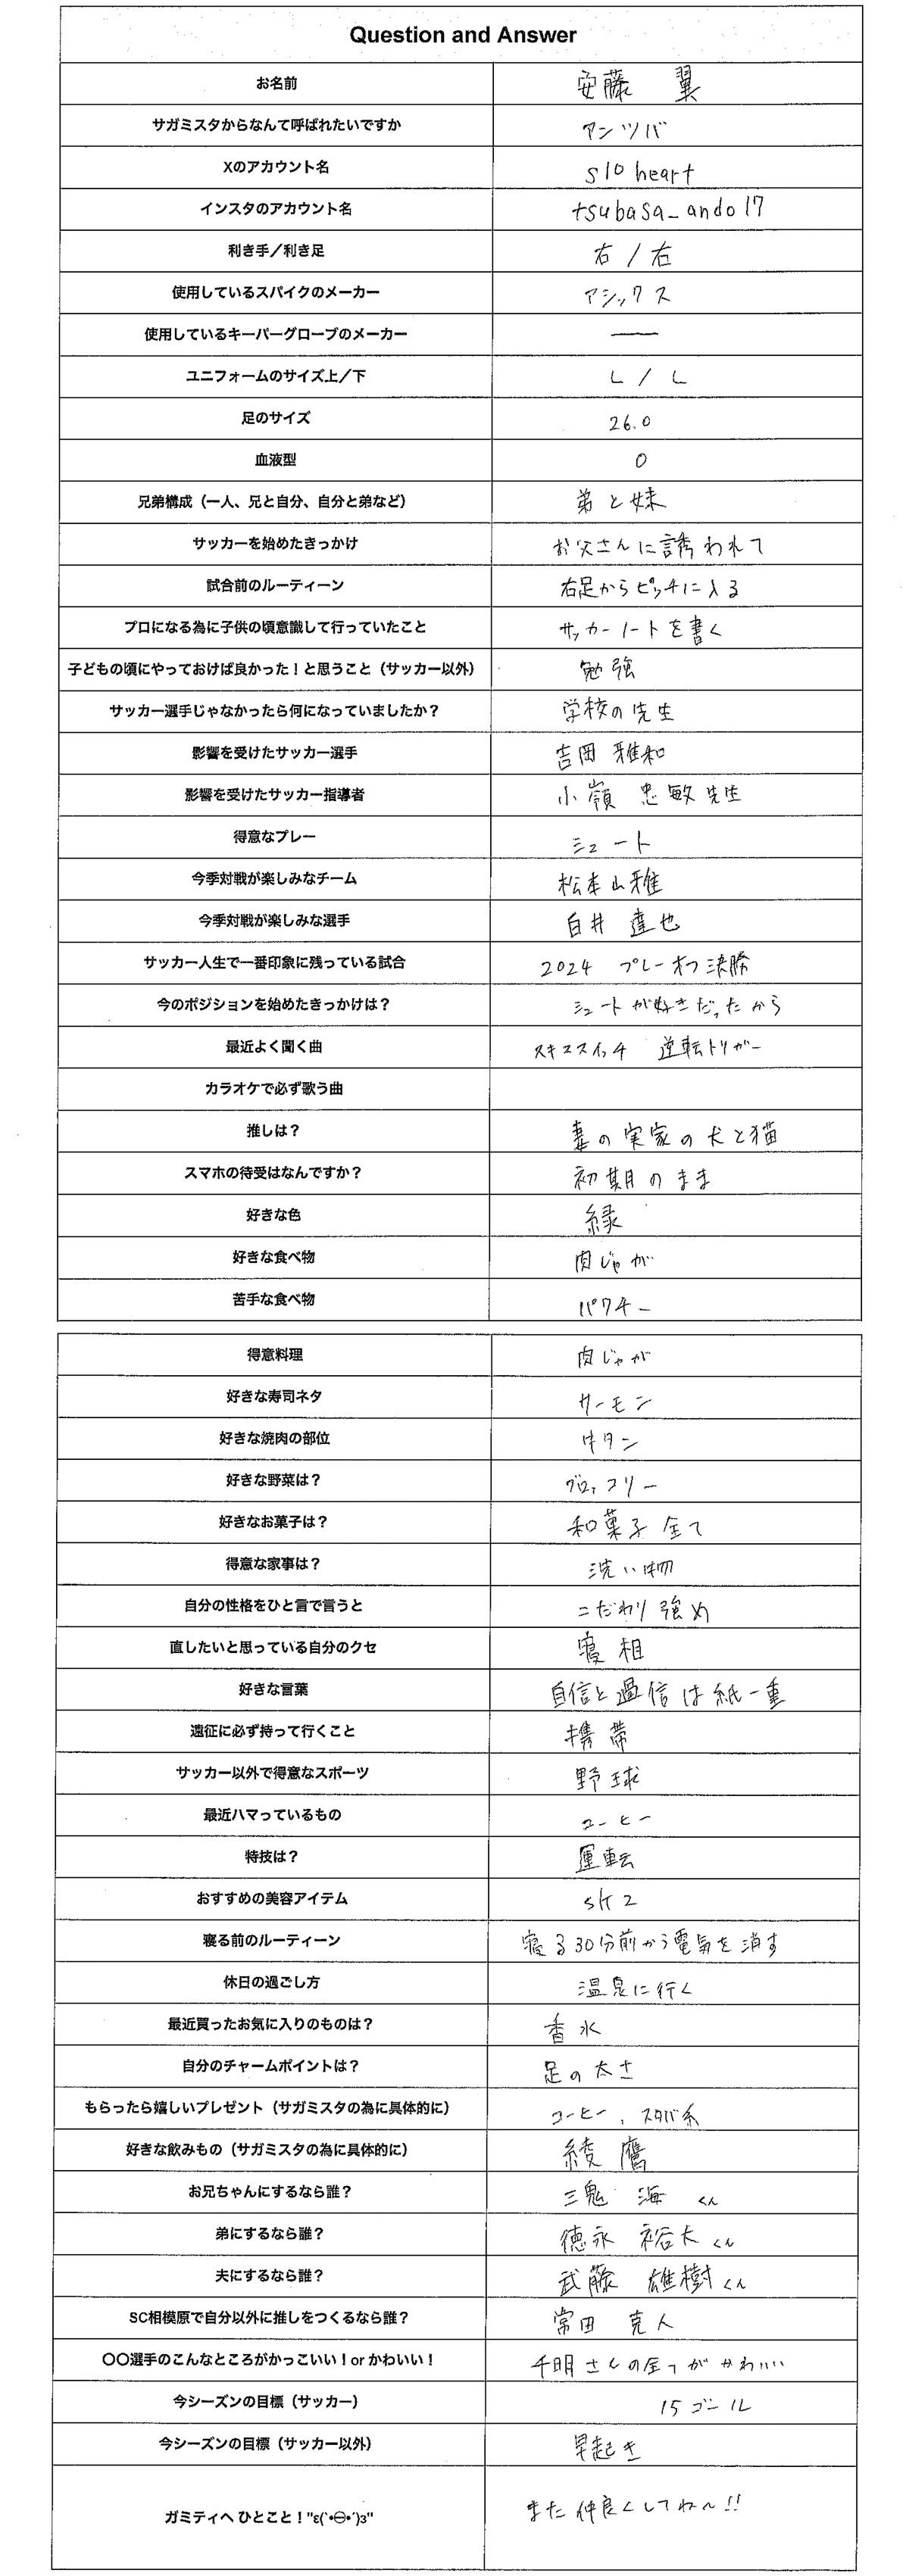 Question and Answer
お名前 安藤 翼
サガミスタからなんて呼ばれたいですか アンツバ
Xのアカウント名 s10 heart
インスタのアカウント名 tsubasa_ando17
利き手／利き足 右／右
使用しているスパイクのメーカー アシックス
使用しているキーパーグローブのメーカー ―
ユニフォームのサイズ上／下 L / L
足のサイズ 26.0
血液型 O
兄弟構成（一人、兄と自分、自分と弟など） 弟と妹
サッカーを始めたきっかけ お父さんに誘われて
試合前のルーティーン 右足からピッチに入る
プロになる為に子供の頃意識して行っていたこと サッカーノートを書く
子どもの頃にやっておけば良かった！と思うこと（サッカー以外） 勉強
サッカー選手じゃなかったら何になっていましたか？ 学校の先生
影響を受けたサッカー選手 吉岡 雅和
影響を受けたサッカー指導者 小嶺 忠敏 先生
得意なプレー シュート
今季対戦が楽しみなチーム 松本山雅
今季対戦が楽しみな選手 白井 達也
サッカー人生で一番印象に残っている試合 2024 プレーオフ決勝
今のポジションを始めたきっかけは？ シュートが好きだったから
最近よく聞く曲 スキマスイッチ 逆転トリガー
カラオケで必ず歌う曲
推しは？ 妻の実家の犬と猫
スマホの待受はなんですか？ 初期のまま
好きな色 緑
好きな食べ物 肉じゃが
苦手な食べ物 パクチー
得意料理 肉じゃが
好きな寿司ネタ サーモン
好きな焼肉の部位 牛タン
好きな野菜は？ ブロッコリー
好きなお菓子は？ 和菓子全て
得意な家事は？ 洗い物
自分の性格をひと言で言うと こだわり強め
直したいと思っている自分のクセ 寝相
好きな言葉 自信と過信は紙一重
遠征に必ず持って行くこと 携帯
サッカー以外で得意なスポーツ 野球
最近ハマっているもの コーヒー
特技は？ 運転
おすすめの美容アイテム SK2
寝る前のルーティーン 寝る30分前から電気を消す
休日の過ごし方 温泉に行く
最近買ったお気に入りのものは？ 香水
自分のチャームポイントは？ 足の太さ
もらったら嬉しいプレゼント（サガミスタの為に具体的に） コーヒー、スタバ系
好きな飲みもの（サガミスタの為に具体的に） 綾鷹
お兄ちゃんにするなら誰？ 三鬼 海 くん
弟にするなら誰？ 徳永 裕大くん
夫にするなら誰？ 武藤 雄樹くん
SC相模原で自分以外に推しをつくるなら誰？ 常田 克人
〇〇選手のこんなところがかっこいい！or かわいい！ 千明さんの全てがかわいい
今シーズンの目標（サッカー） 15ゴール
今シーズンの目標（サッカー以外） 早起き
ガミティへ ひとこと！"ε(`•⊖•´)з" また仲良くしてね〜!!